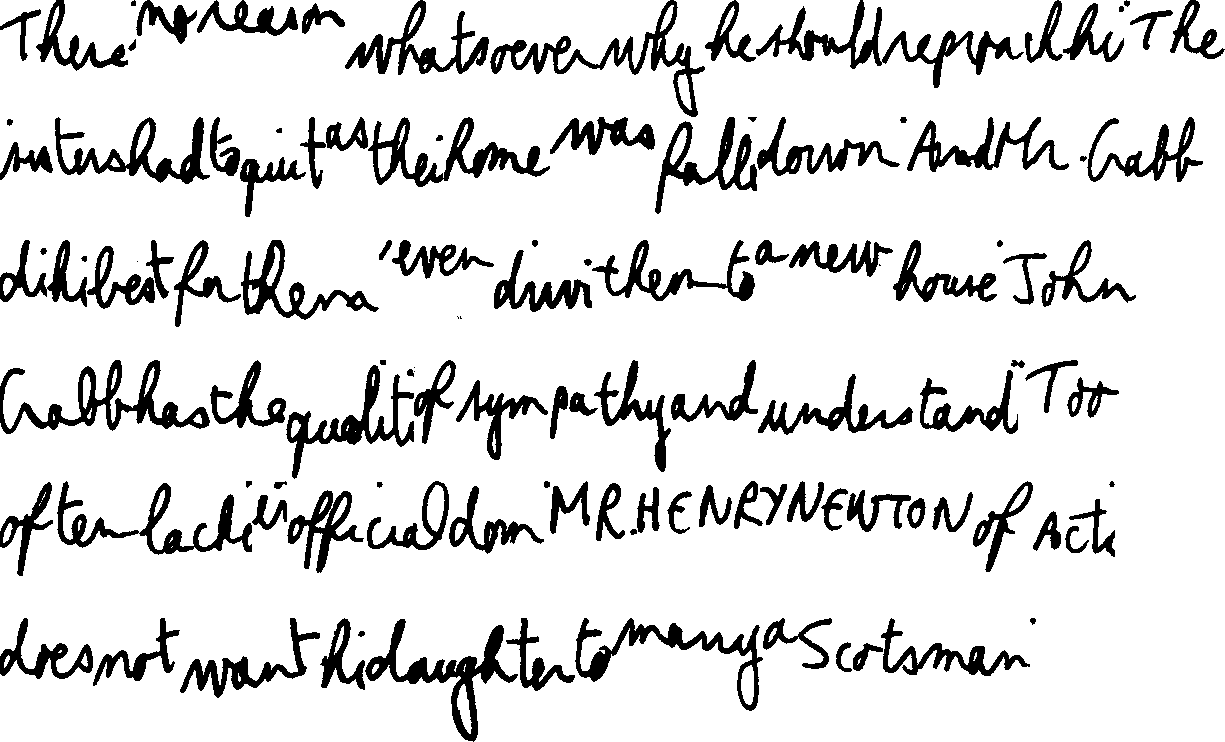 There's no reason whatsoever why he should reproach hi." The
sisters had to quit as thei home was falli down. And Mr. Crabb
di hi best for them, even drivi them to a new house. John
Crabb has the qualiti of sympathy and understand." Too
often lacki in officialdom. MR. HENRY NEWTON of Acti
does not want hi daughter to marry a Scotsman.